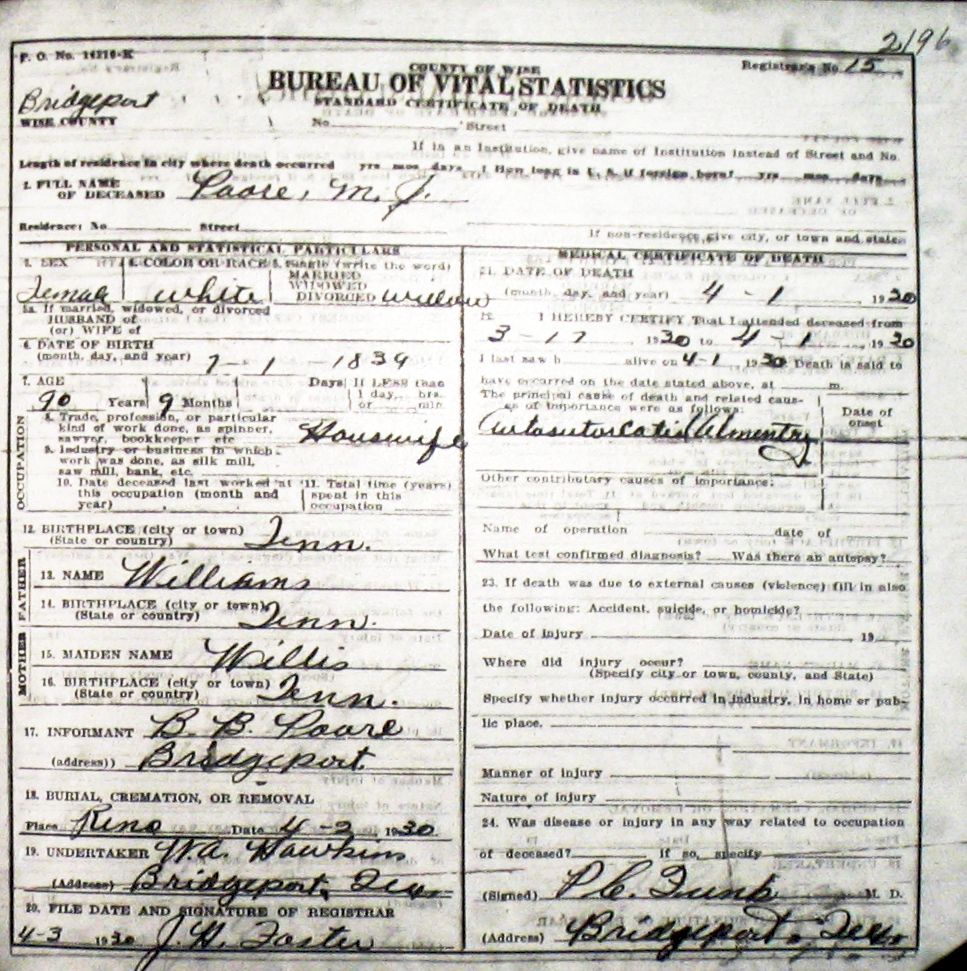 2196
F. O. No. 14210-K
COUNTY OF WISE
Registrar's No. 15
BUREAU OF VITAL STATISTICS
STANDARD CERTIFICATE OF DEATH
Bridgeport
WISE COUNTY
No. Street
If in an Institution, give name of Institution instead of Street and No.
Length of residence in city where death occurred yrs mos days How long in U. S. if foreign born? yrs mos days
2. FULL NAME
OF DECEASED Poore, M. J.
Residence: No. Street
If non-residence give city, or town and state
PERSONAL AND STATISTICAL PARTICULARS
3. SEX Female
4. COLOR OR RACE white
5. Single (write the word)
MARRIED
WIDOWED
DIVORCED widow
5a. If married, widowed, or divorced
HUSBAND of
(or) WIFE of
6. DATE OF BIRTH
(month, day, and year) 7-1-1839
7. AGE
90 Years 9 Months Days If LESS than
1 day, hrs.
or min.
OCCUPATION
8. Trade, profession, or particular
kind of work done, as spinner,
sawyer, bookkeeper etc Housewife
9. Industry or business in which
work was done, as silk mill,
saw mill, bank, etc.
10. Date deceased last worked at
this occupation (month and
year)
11. Total time (years)
spent in this
occupation
12. BIRTHPLACE (city or town)
(State or country) Tenn.
FATHER
13. NAME Williams
14. BIRTHPLACE (city or town)
(State or country) Tenn.
MOTHER
15. MAIDEN NAME Willis
16. BIRTHPLACE (city or town)
(State or country) Tenn.
17. INFORMANT B. B. Poore
(address)) Bridgeport
18. BURIAL, CREMATION, OR REMOVAL
Place Reno Date 4-2 1930
19. UNDERTAKER W.A. Hawkins
(Address) Bridgeport, Texas
20. FILE DATE AND SIGNATURE OF REGISTRAR
4-3 1930 J. H. Foster
MEDICAL CERTIFICATE OF DEATH
21. DATE OF DEATH
(month, day, and year) 4-1 1930
22. I HEREBY CERTIFY That I attended deceased from
3-17 1930 to 4-1 1930
I last saw h alive on 4-1 1930 Death is said to
have occurred on the date stated above, at m.
The principal cause of death and related caus-
es of importance were as follows:
Date of
onset
Other contributary causes of importance:
Name of operation date of
What test confirmed diagnosis? Was there an autopsy?
23. If death was due to external causes (violence) fill in also
the following: Accident, suicide, or homicide?
Date of injury 19
Where did injury occur?
(Specify city or town, county, and State)
Specify whether injury occurred in industry, in home or pub-
lic place.
Manner of injury
Nature of injury
24. Was disease or injury in any way related to occupation
of deceased? If so, specify
(Signed) P. C. Funk M. D.
(Address) Bridgeport, Texas